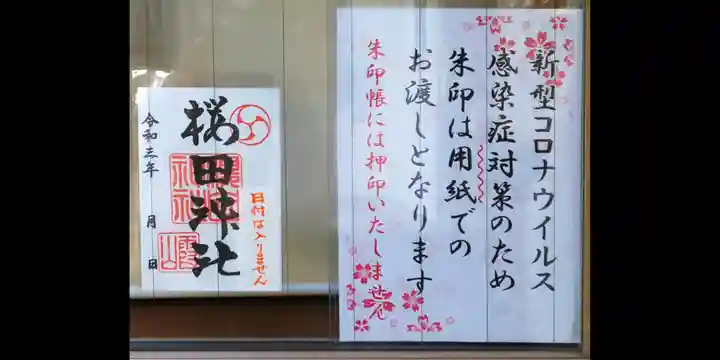 新型コロナウイルス
感染症対策のため
朱印は用紙での
お渡しとなります
朱印帳には押印いたしません
桜田神社
日付は入りません
令和三年 月 日